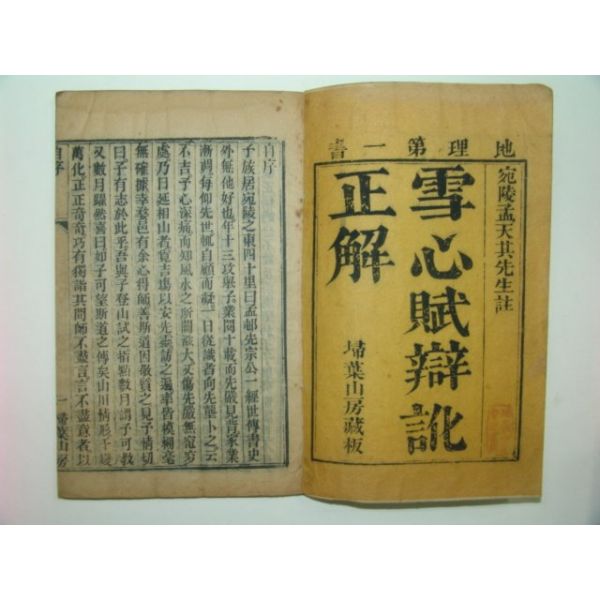 地理第一書
宛陵孟天其先生註
雪心賦辯訛
正解
埽葉山房藏板
自序
予族居宛陵之東四十里曰孟邨先宗公一經世傳書史
外無他好也年十三攻舉子業閱十載而先嚴見背家業
漸凋每仰先世輒自顧而疑一日從識者向先塋卜之云
不吉予心深痛而知風水之所關誠大又傷先嚴無窀穸
處乃日延相山者覓吉壤以安先靈訪之遍率皆模糊毫
無確據幸婺邑有余心得師善斯道因敬質之見予情切
曰子有志於此乎吾與子登山試之指點數月謂予可教
又數月躍然喜曰如子可望斯道之傳矣山川情形千變
萬化正正奇奇巧有獨詣其間師不盡言言不盡意者以
自序
一
埽葉山房